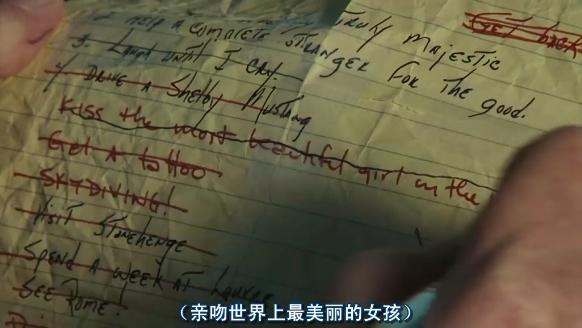 HELP A COMPLETE STRANGER FOR The good.
TRULY MAJESTIC
Get back
3. Laugh until I cry
4) DRIVE A Shelby Mustang
Kiss the most beautiful girl in the
Get A tattoo
SKYDIVING!
Visit Stonehenge
Spend A week AT
SEE ROME!
（亲吻世界上最美丽的女孩）